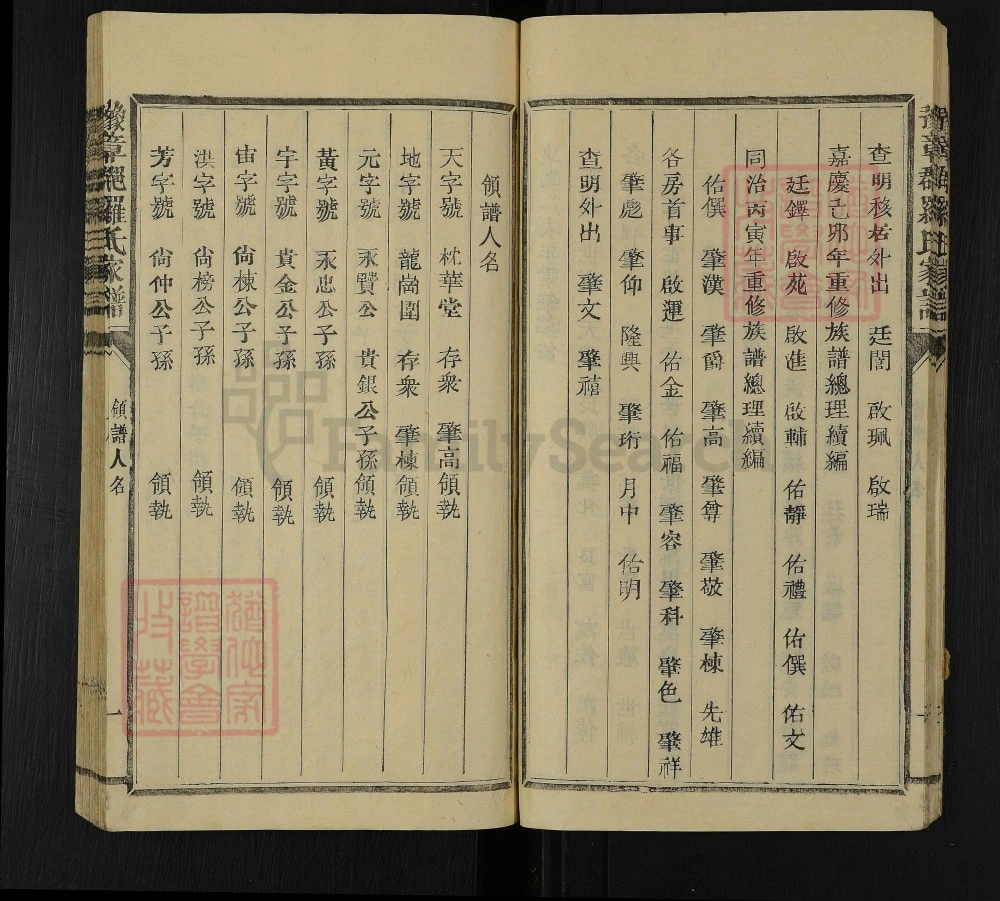 查明移居外出 廷誾 啟珮 啟瑞
嘉慶己卯年重修族譜總理續編
廷鐸 啟苑 啟進 啟輔 佑靜 佑禮 佑僎 佑文
同治丙寅年重修族譜總理續編
佑僎 肇漢 肇爵 肇高 肇尊 肇敬 肇棟 先雄
各房首事 啟運 佑金 佑福 肇容 肇科 肇色 肇祥
肇彪 肇仰 隆興 肇珩 月中 佑明
查明外出 肇文 肇禧
領譜人名
天字號 枕華堂 存衆 肇高領執
地字號 龍崗圍 存衆 肇棟領執
元字號 永賢公 貴銀公子孫領執
黃字號 永忠公子孫 領執
宇字號 貴金公子孫 領執
宙字號 尙棟公子孫 領執
洪字號 尙榜公子孫 領執
芳字號 尙仲公子孫 領執
豫章 羅氏家譜
領譜人名
一
譜學會
收藏
FamilySearch